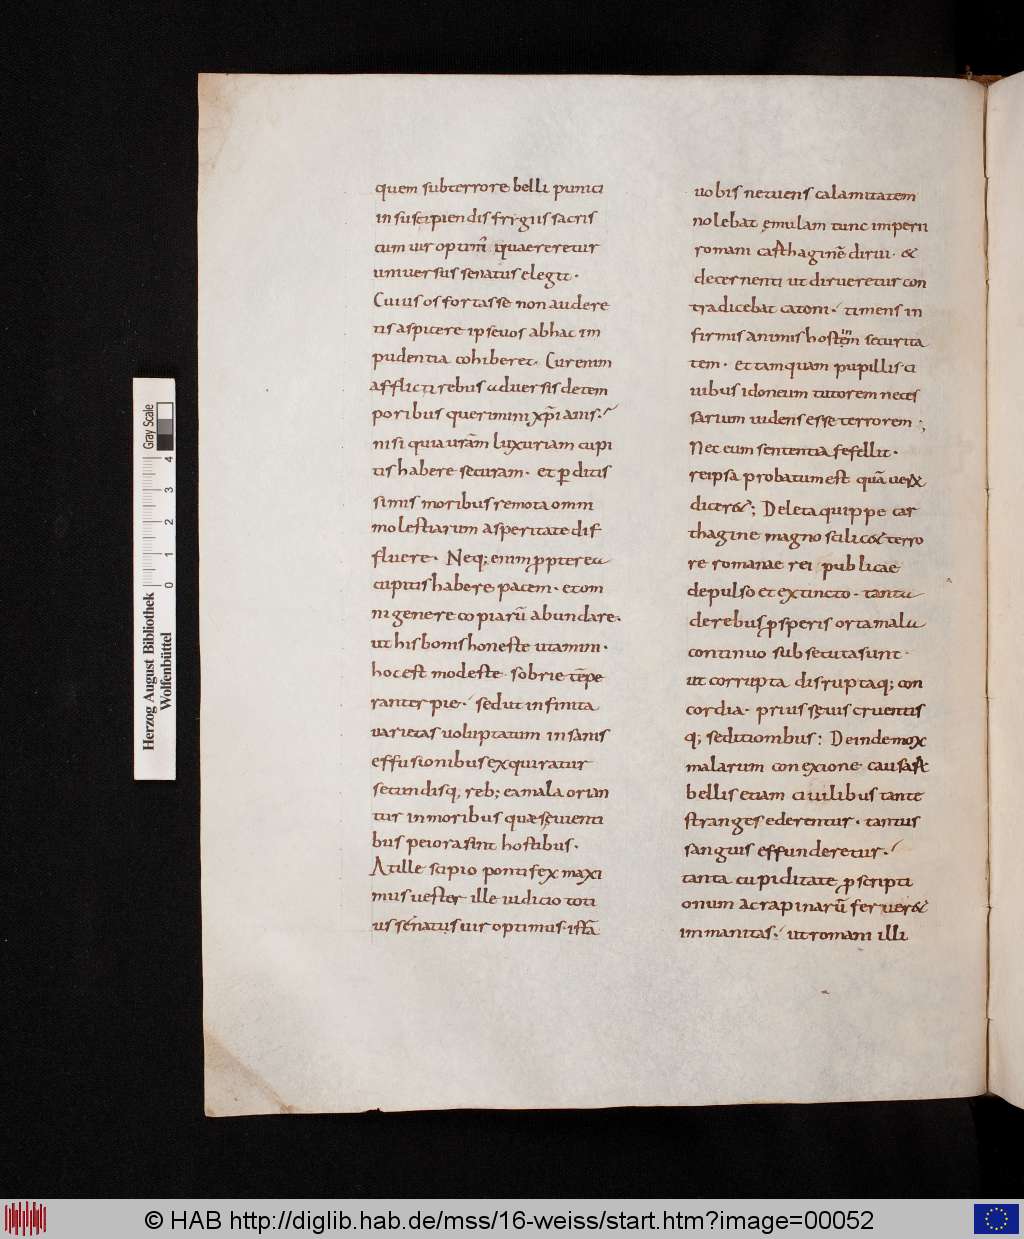 quem subterrore belli punici
insuscipiendis frygiis sacris
cum uir optim̄ quaereretur
uniuersus senatus elegit.
Cuius os fortasse non audere
tis aspicere ipse uos abhac im
pudentia cohiberet. Cur enim
afflicti rebus aduersis detem
poribus querimini xp̄ianis?
nisi quia urām luxuriam cupi
tis habere securam. et ꝑditis
simis moribus remota omni
molestiarum asperitate dif
fluere. Neq; enim ꝓpterea
cupitis habere pacem. et om
ni genere copiarū abundare.
ut his bonis honeste utamini.
hoc est modeste. sobrie tēpe
ranter pie. sed ut infinita
uarietas uoluptatum insanis
effusionibus exquiratur
secundisq, reb; ea mala orian
tur inmoribus quae sęuienti
bus peiora sint hostibus.
At ille scipio pontifex maxi
mus uester ille iudicio toti
us senatus uir optimus. istā
uobis metuens calamitatem
nolebat ęmulam tunc imperii
romani casthaginē dirui. &
decernenti ut dirueretur con
tradicebat catoni. timens in
firmis animis hostem securita
tem. et tamquam pupillis ci
uibus idoneum tutorem neces
sarium uidens esse terrorem;
Nec eum sententia fefellit.
reipsa probatum est quā uerꝝ
dicer&; Deleta quippe car
thagine magno scilic& terro
re romanae rei publicae
depulso et extincto. tanta
de rebus ꝓsperis orta mala
continuo subsecuta sunt.
ut corrupta disruptaq; con
cordia. prius sęuis cruentis
q; seditionibus: Deinde mox
malarum conexione causarum
bellis etiam ciuilibus tante
stranges ederentur. tantus
sanguis effunderetur.
tanta cupiditate ꝓscripti
onum ac rapinarū feruer&
immanitas. ut romani illi
Herzog August Bibliothek
Wolfenbüttel
Gray Scale
0 1 2 3 4
© HAB http://diglib.hab.de/mss/16-weiss/start.htm?image=00052